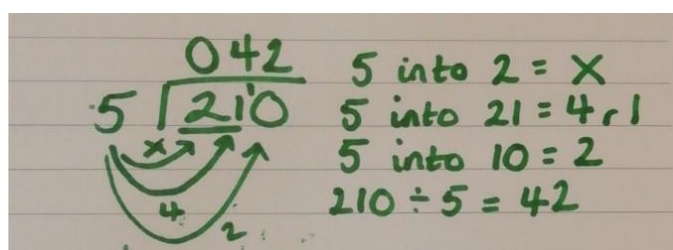 042
5 21¹0
x
4
2
5 into 2 = X
5 into 21 = 4 r 1
5 into 10 = 2
210 ÷ 5 = 42